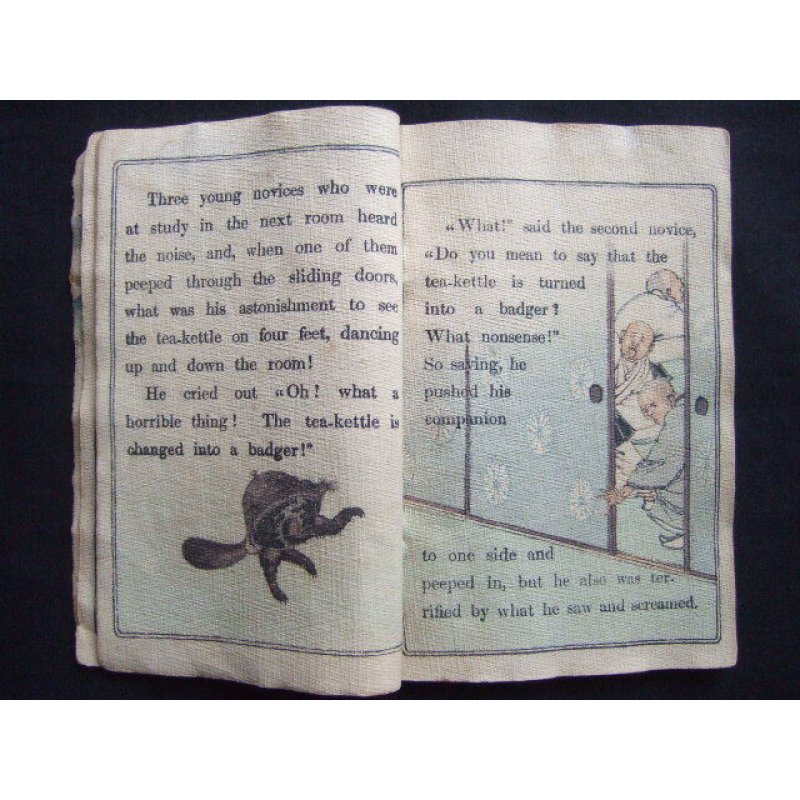 Three young novices who were
at study in the next room heard
the noise, and, when one of them
peeped through the sliding doors,
what was his astonishment to see
the tea-kettle on four feet, dancing
up and down the room!
He cried out “Oh! what a
horrible thing! The tea-kettle is
changed into a badger!”
“What!” said the second novice,
“Do you mean to say that the
tea-kettle is turned
into a badger?
What nonsense!”
So saying, he
pushed his
companion
to one side and
peeped in, but he also was ter-
rified by what he saw and screamed.